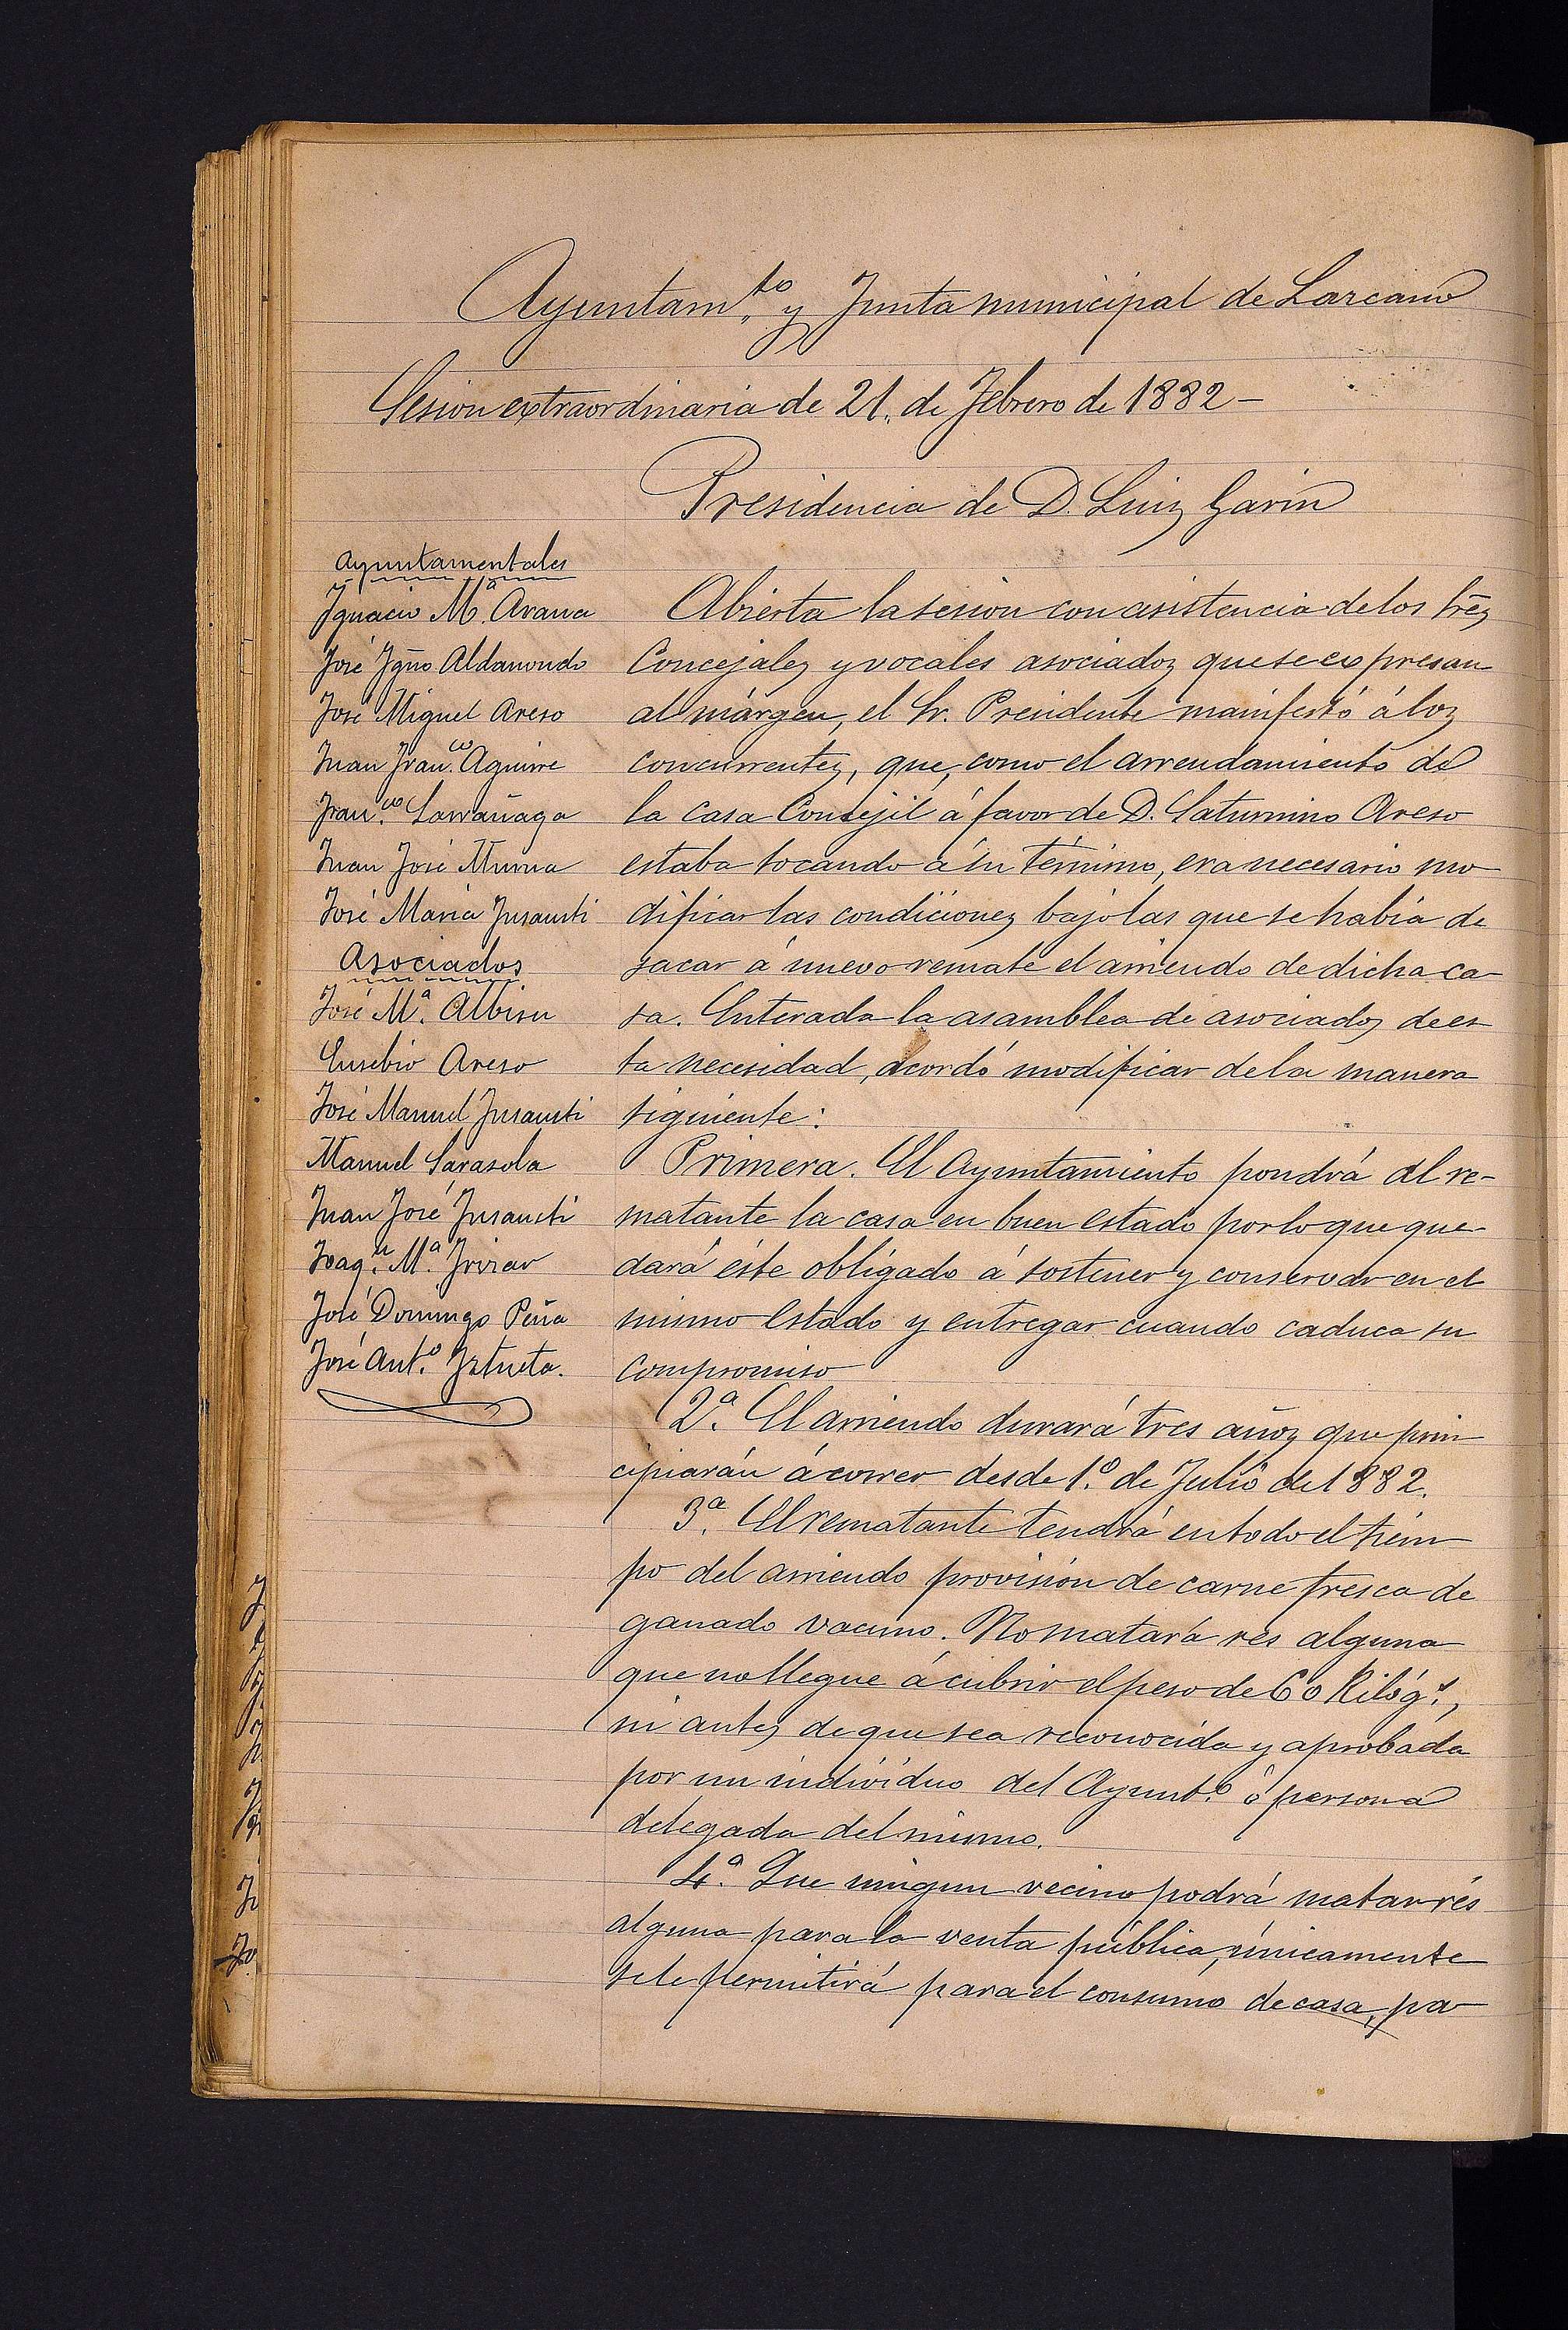 Ayuntam.to y Junta municipal de Lazcano
Sesion extraordinaria de 21. de Febrero de 1882-
Presidencia de D. Luiz Garin
Ayuntamentales
Ygnacio M.a Arana
José Ygno Aldanondo
José Miguel Areso
Juan Fran.co Aguirre
Fran.co Larrañaga
Juan José Murua
José Maria Jusausti
Asociados
José M.a Albisu
Eusebio Areso
José Manuel Jusausti
Manuel Sarasola
Juan José Jusausti
Joaq.n M.a Irizar
José Domingo Peña
José Ant.o Iztueta.
Abierta la sesion con asistencia de los Srez
Concejalez y vocales asociadoz que se expresan
al márgen, el Sr. Presidente manifestó á loz
concurrentez, que, como el arrendamiento de
la casa Consejil á favor de D. Saturnino Areso
estaba tocando á su término, era necesario mo-
dificar las condicionez bajo las que se había de
sacar á nuevo remate el arriendo de dicha ca-
sa. Enterada la asamblea de asociadoz de es-
ta necesidad, acordó modificar de la manera
siguiente:
Primera. El Ayuntamiento pondrá al re-
matante la casa en buen estado por lo que que-
dará éste obligado á sostener y conservar en el
mismo estado y entregar cuando caduca su
compromiso
2.a El arriendo durará tres añoz que prin-
cipiarán á correr desde 1.o de Julio de 1882.
3.a El rematante tendrá en todo el tiem-
po del arriendo provisión de carne fresca de
ganado vacuno. No matará res alguna
que no llegue á cubrir el peso de 60 Kilóg.s,
ni antez de que sea reconocida y aprobada
por un individuo del Ayunt.o ó persona
delegada del mismo.
4.a Que ningun vecino podrá matar rés
alguna para la venta pública, únicamente
se le permitirá para el consumo de casa, pa-